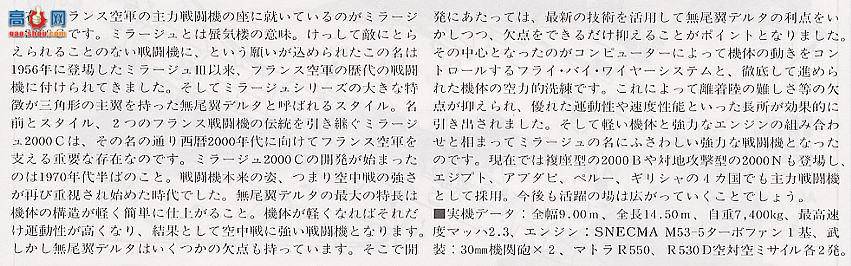 高机网
ランス空軍の主力戦闘機の座に就いているのがミラージ
です。ミラージュとは蜃気楼の意味。けっして敵にとら
えられることのない戦闘機に、という願いが込められたこの名は
1956年に登場したミラージュⅢ以来、フランス空軍の歴代の戦闘
機に付けられてきました。そしてミラージュシリーズの大きな特
徴が三角形の主翼を持った無尾翼デルタと呼ばれるスタイル。名
前とスタイル、2つのフランス戦闘機の伝統を引き継ぐミラージ
ュ2000Cは、その名の通り西暦2000年代に向けてフランス空軍を
支える重要な存在なのです。ミラージュ2000Cの開発が始まった
のは1970年代半ばのこと。戦闘機本来の姿、つまり空中戦の強さ
が再び重視され始めた時代でした。無尾翼デルタの最大の特長は
機体の構造が軽く簡単に仕上がること。機体が軽くなればそれだ
け運動性が高くなり、結果として空中戦に強い戦闘機となります。
しかし無尾翼デルタはいくつかの欠点も持っています。そこで開
発にあたっては、最新の技術を活用して無尾翼デルタの利点をい
かしつつ、欠点をできるだけ抑えることがポイントとなりました。
その中心となったのがコンピューターによって機体の動きをコン
トロールするフライ・バイ・ワイヤーシステムと、徹底して進めら
れた機体の空力的洗練です。これによって離着陸の難しさ等の欠
点が抑えられ、優れた運動性や速度性能といった長所が効果的に
引き出されました。そして軽い機体と強力なエンジンの組み合わ
せと相まってミラージュの名にふさわしい強力な戦闘機となった
のです。現在では複座型の2000Bや対地攻撃型の2000Nも登場し、
エジプト、アブダビ、ペルー、ギリシャの4カ国でも主力戦闘機
として採用。今後も活躍の場は広がっていくことでしょう。
■実機データ：全幅9.00m、全長14.50m、自重7,400kg、最高速
度マッハ2.3、エンジン：SNECMA M53-5ターボファン1基、武
装：30mm機関砲×2、マトラR550、R530D空対空ミサイル各2発。